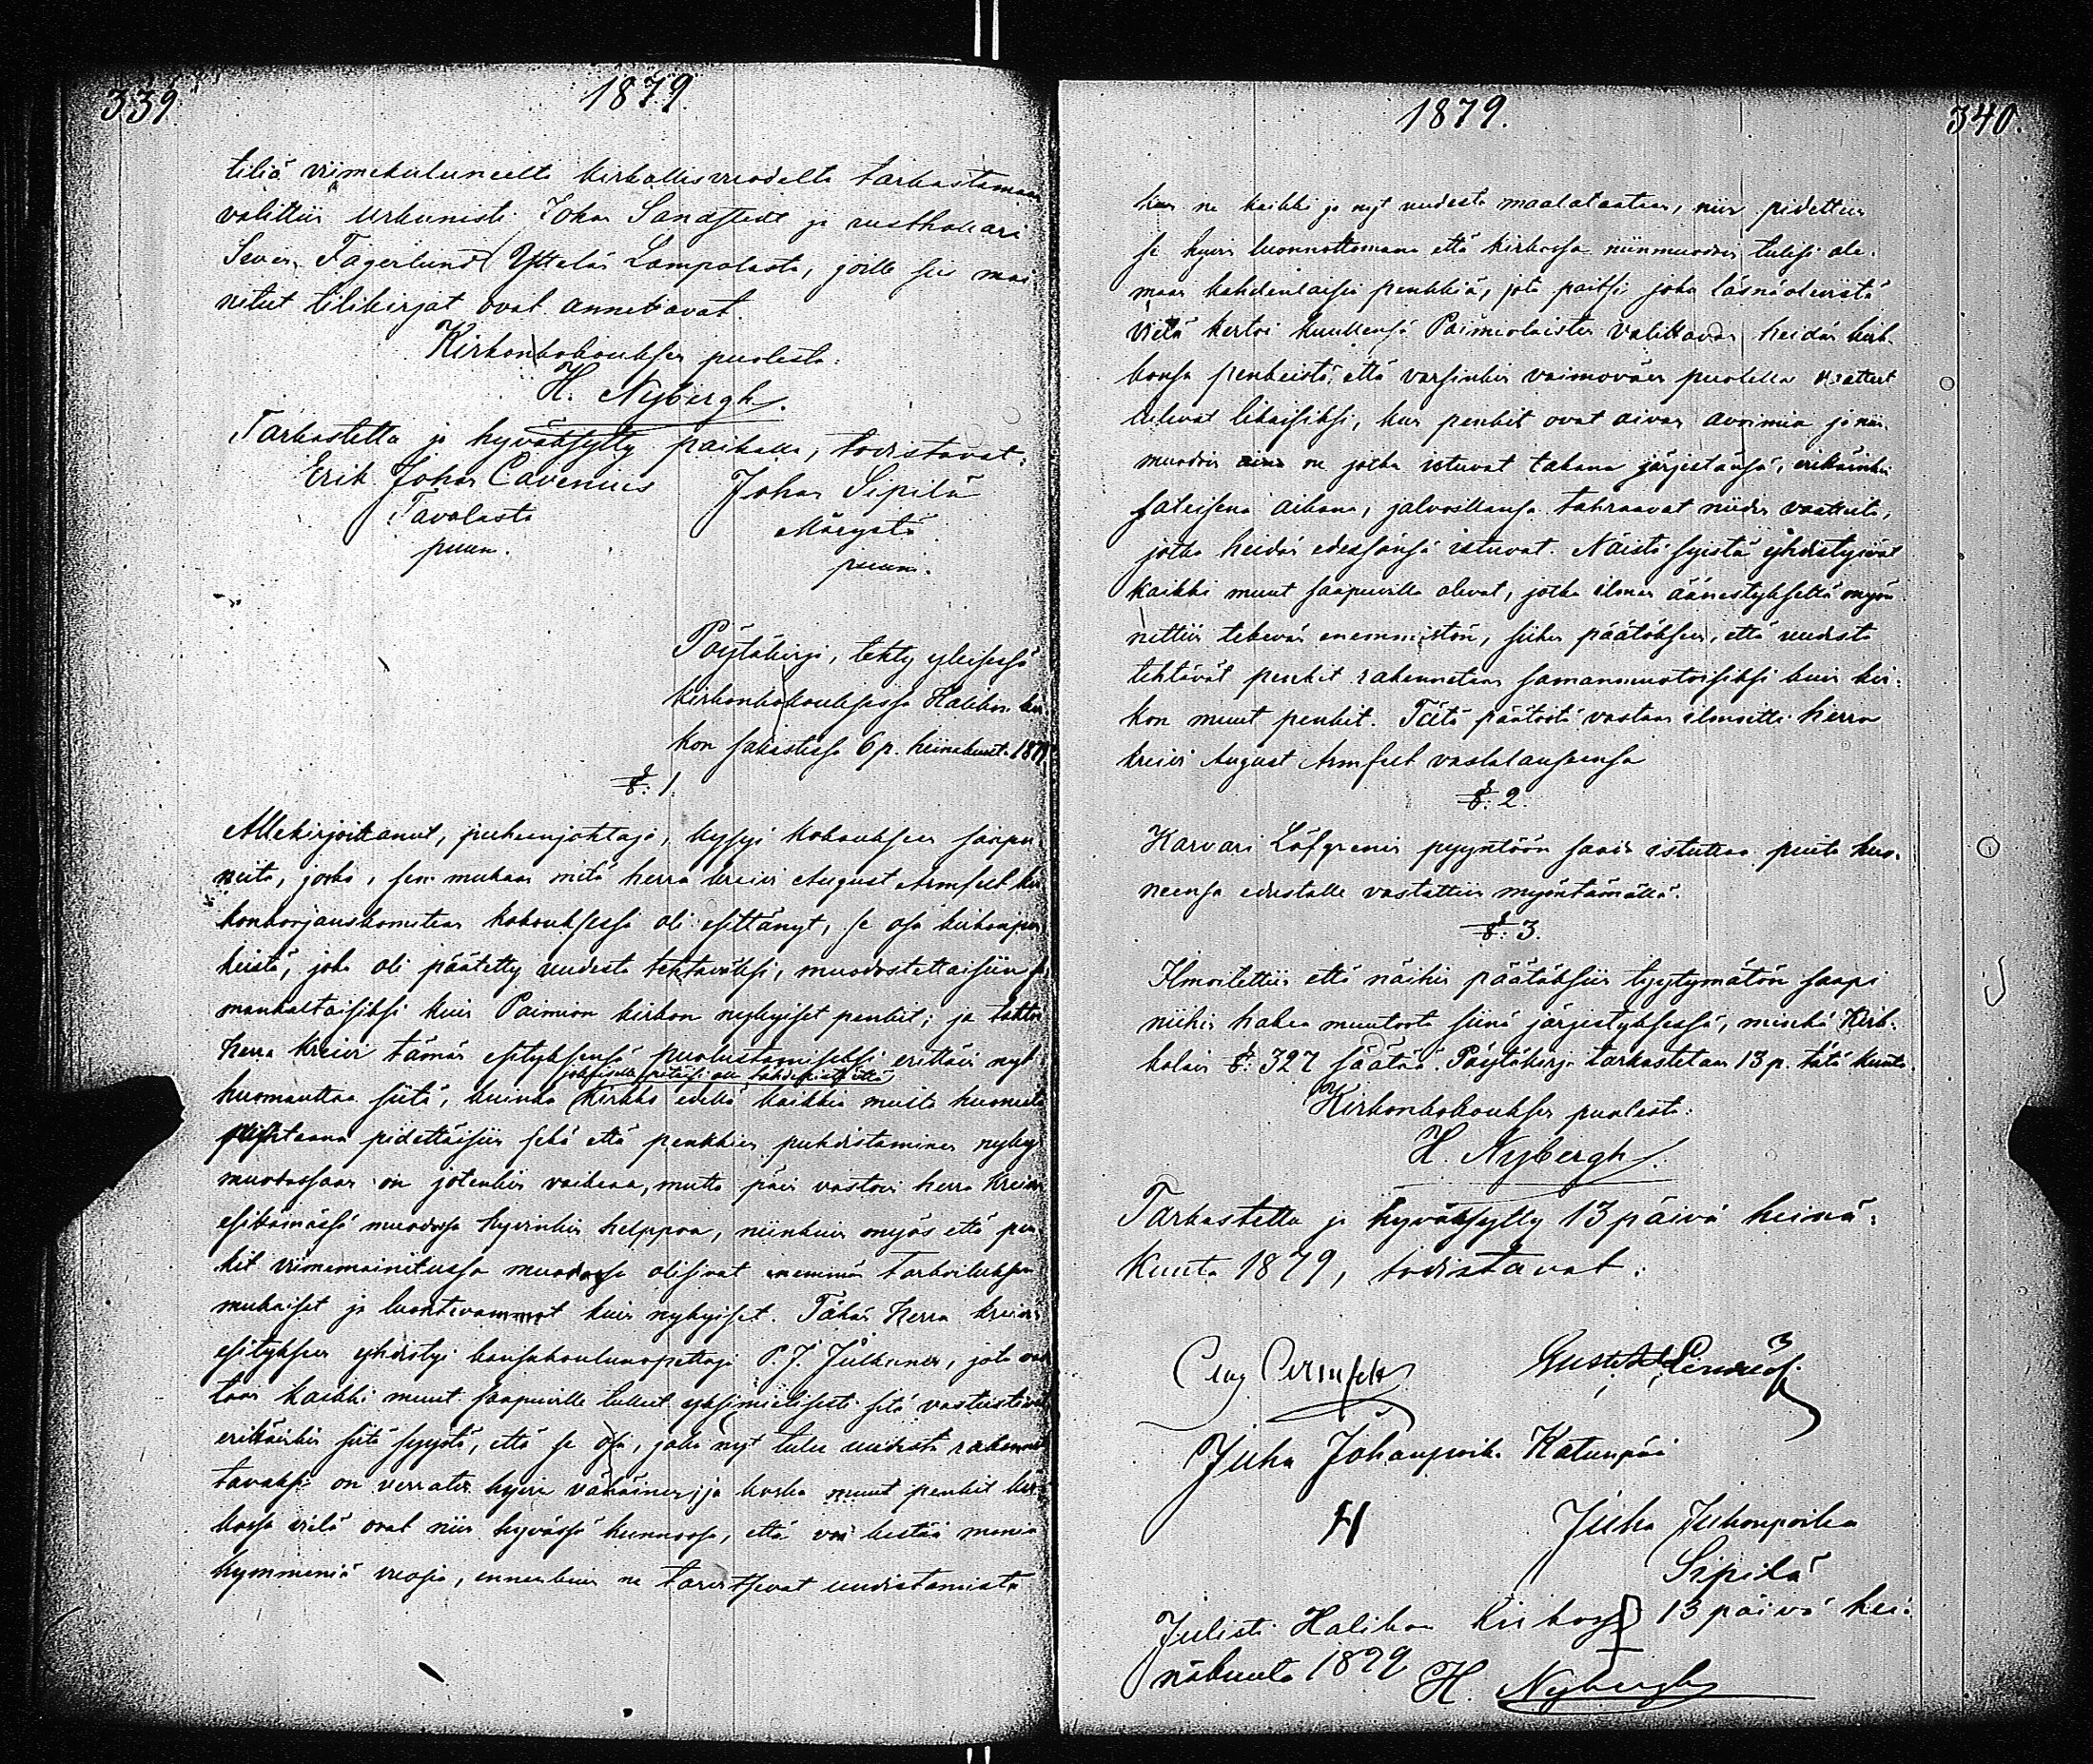 339.
1879
tiliä viimekuluneelta kirkollisvuodelta tarkastamaan
valittiin urkunisti Johan Sandstedt ja rusthollari
Sever. Fagerlund Yttelän Lampolasta, joille siis mai-
nitut tilikirjat ovat annettavat.
Kirkonkokouksen puolesta:
H. Nybergh.
Tarkastettu ja hyväksytty paikalla, todistavat:
Erik Johan Cavenius Johan Sipilä
Tavolasta Märystä
puum. puum.
Pöytäkirja, tehty yleisessä
kirkonkokouksessa Halikon kir-
kon sakastissa 6 p. heinäkuuta 1879.
§. 1.
Allekirjoittanut, puheenjohtaja, kysyi kokouksen saapu-
neita, josko, sen mukaan mitä herra kreivi August Armfelt kir-
konkorjauskomitean kokouksessa oli esittänyt, se osa kirkonpen-
keistä, joka oli päätetty uudesta tehtäväksi, muodostettaisiin sa-
mankaltaisiksi kuin Paimion kirkon nykyiset penkit; ja tahtoi
herra kreivi tämän esityksensä puolustamiseksi erittäin nyt
huomauttaa siitä, kuinka kirkko edellä kaikkia muita huoneita
siistinä pidettäisiin sekä että penkkien puhdistaminen nyky-
muodossaan on jotenkin vaikeaa, mutta päin vastoin herra kreivin
esittämässä muodossa hyvinkin helppoa, niinkuin myös että pen-
kit viimemainitussa muodossa olisivat enemmän tarkoituksen
mukaiset ja luontevammat kuin nykyiset. Tähän herra kreivin
esitykseen yhdistyi kansakoulunopettaja P. J. Julkunen, jota vas-
taan kaikki muut saapuville tulleet yksimielisesti sitä vastustivat
erittäinkin siitä syystä, että se osa, joka nyt tulee uudesta rakennet-
tavaksi on verraten hyvin vähäinen, ja koska muut penkit kir-
kossa vielä ovat niin hyvässä kunnossa, että voi kestää monia
kymmeniä vuosia, ennenkuin ne tarvitsevat uudistamista
1879.
340.
kun ne kaikki jo nyt uudesta maalataan, niin pidettiin
se hyvin luonnottomana että kirkossa niinmuodoin tulisi ole-
maan kahdenlaisia penkkiä, jota paitsi joku läsnäolevista
vielä kertoi kuulleensa Paimiolaisten valittavan heidän kirk-
konsa penkeistä, että varsinkin vaimoväen puolella vaatteet
tulevat likaisiksi, kun penkit ovat aivan avoimia ja niin-
muodoin ne jotka istuvat takana järjestänsä, erittäinkin
sateisena aikana, jalvoillansa tahraavat niiden vaatteita,
jotka heidän edessänsä istuvat. Näistä syistä yhdistyivät
kaikki muut saapuvilla olevat, jotka ilman äänestyksettä myön-
nettiin tekevän enemmistön, siihen päätökseen, että uudesta
tehtävät penkit rakennetaan samanmuotoisiksi kuin kir-
kon muut penkit. Tätä päätöstä vastaan ilmoitti herra
kreivi August Armfelt vastalauseensa
§. 2.
Karvari Löfgrenin pyyntöön saada istuttaa puita huo-
neensa edustalle vastattiin myöntämällä.
§. 3.
Ilmoitettiin että näihin päätöksiin tyytymätön saapi
niihin hakea muutosta siinä järjestyksessä, minkä Kirk-
kolain §: 327 säätää. Pöytäkirja tarkastetaan 13 p. tätä kuuta.
Kirkonkokouksen puolesta:
H. Nybergh.
Tarkastettu ja hyväksytty 13 päivä heinä-
kuuta 1879, todistavat:
Aug Armfelt Gust
Juha Johanpoika Katunpää
Juha Juhonpoika
Sipilä
Julisti Halikon kirkossa 13 päivä hei-
näkuuta 1879 H. Nybergh